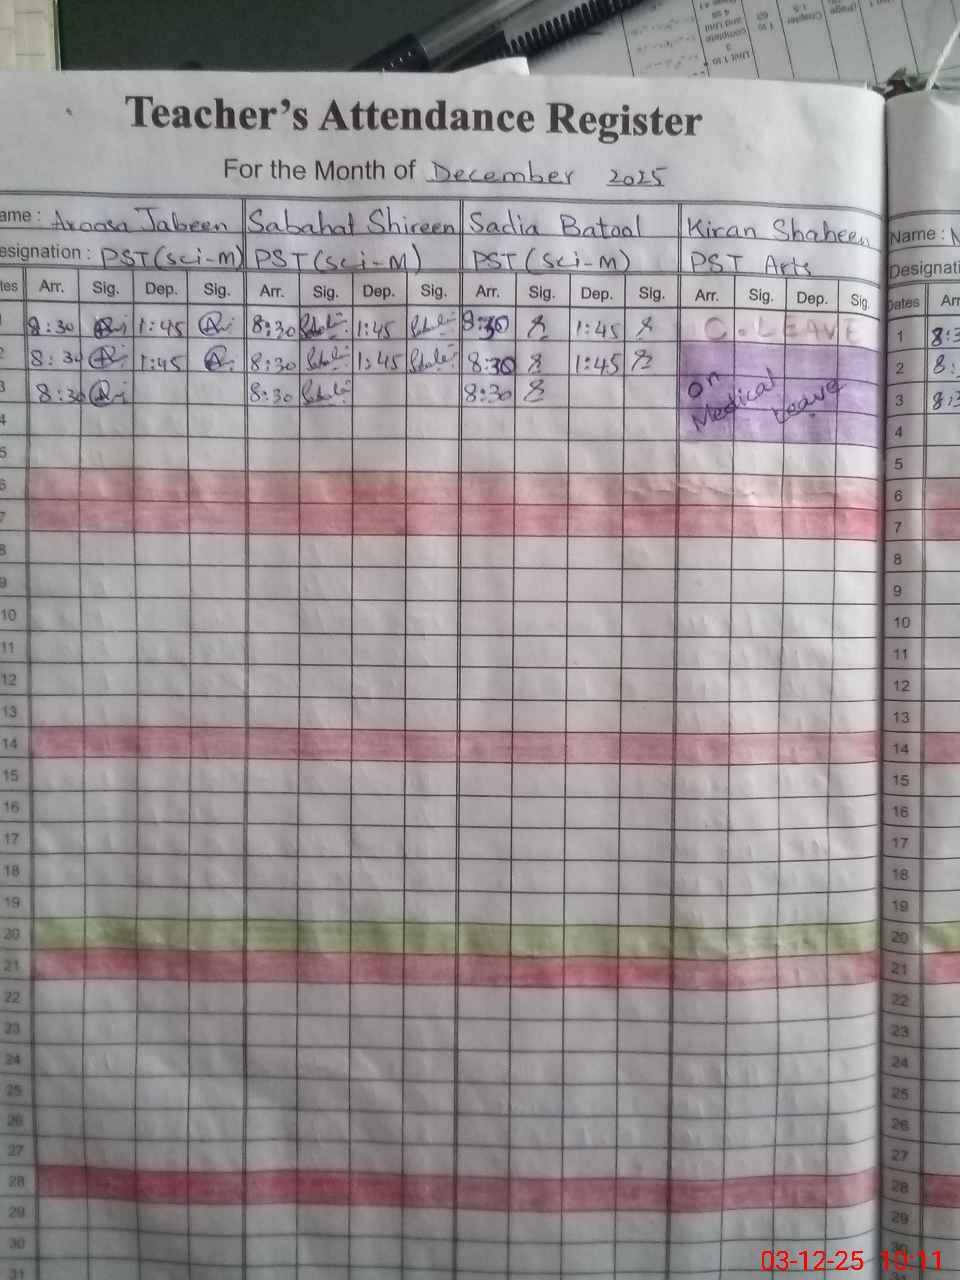 Teacher's Attendance Register
For the Month of December 2025
ame : Aroosa Jabeen Sabahat Shireen Sadia Batool Kiran Shaheen Name :
esignation : PST(sci-M) PST(sci-M) PST(sci-M) PST Arts Designati
tes Arr. Sig. Dep. Sig. Arr. Sig. Dep. Sig. Arr. Sig. Dep. Sig. Arr. Sig. Dep. Sig. Dates Arr
8:30 1:45 8:30 1:45 8:30 1:45 C.LEAVE 1 8:3
2 8:30 1:45 8:30 1:45 8:30 1:45 on 2 8:
3 8:30 8:30 8:30 Medical Leave 3 8:3
4 4
5 5
6 6
7 7
8 8
9 9
10 10
11 11
12 12
13 13
14 14
15 15
16 16
17 17
18 18
19 19
20 20
21 21
22 22
23 23
24 24
25 25
26 26
27 27
28 28
29 29
30 30
31
03-12-25 10:11